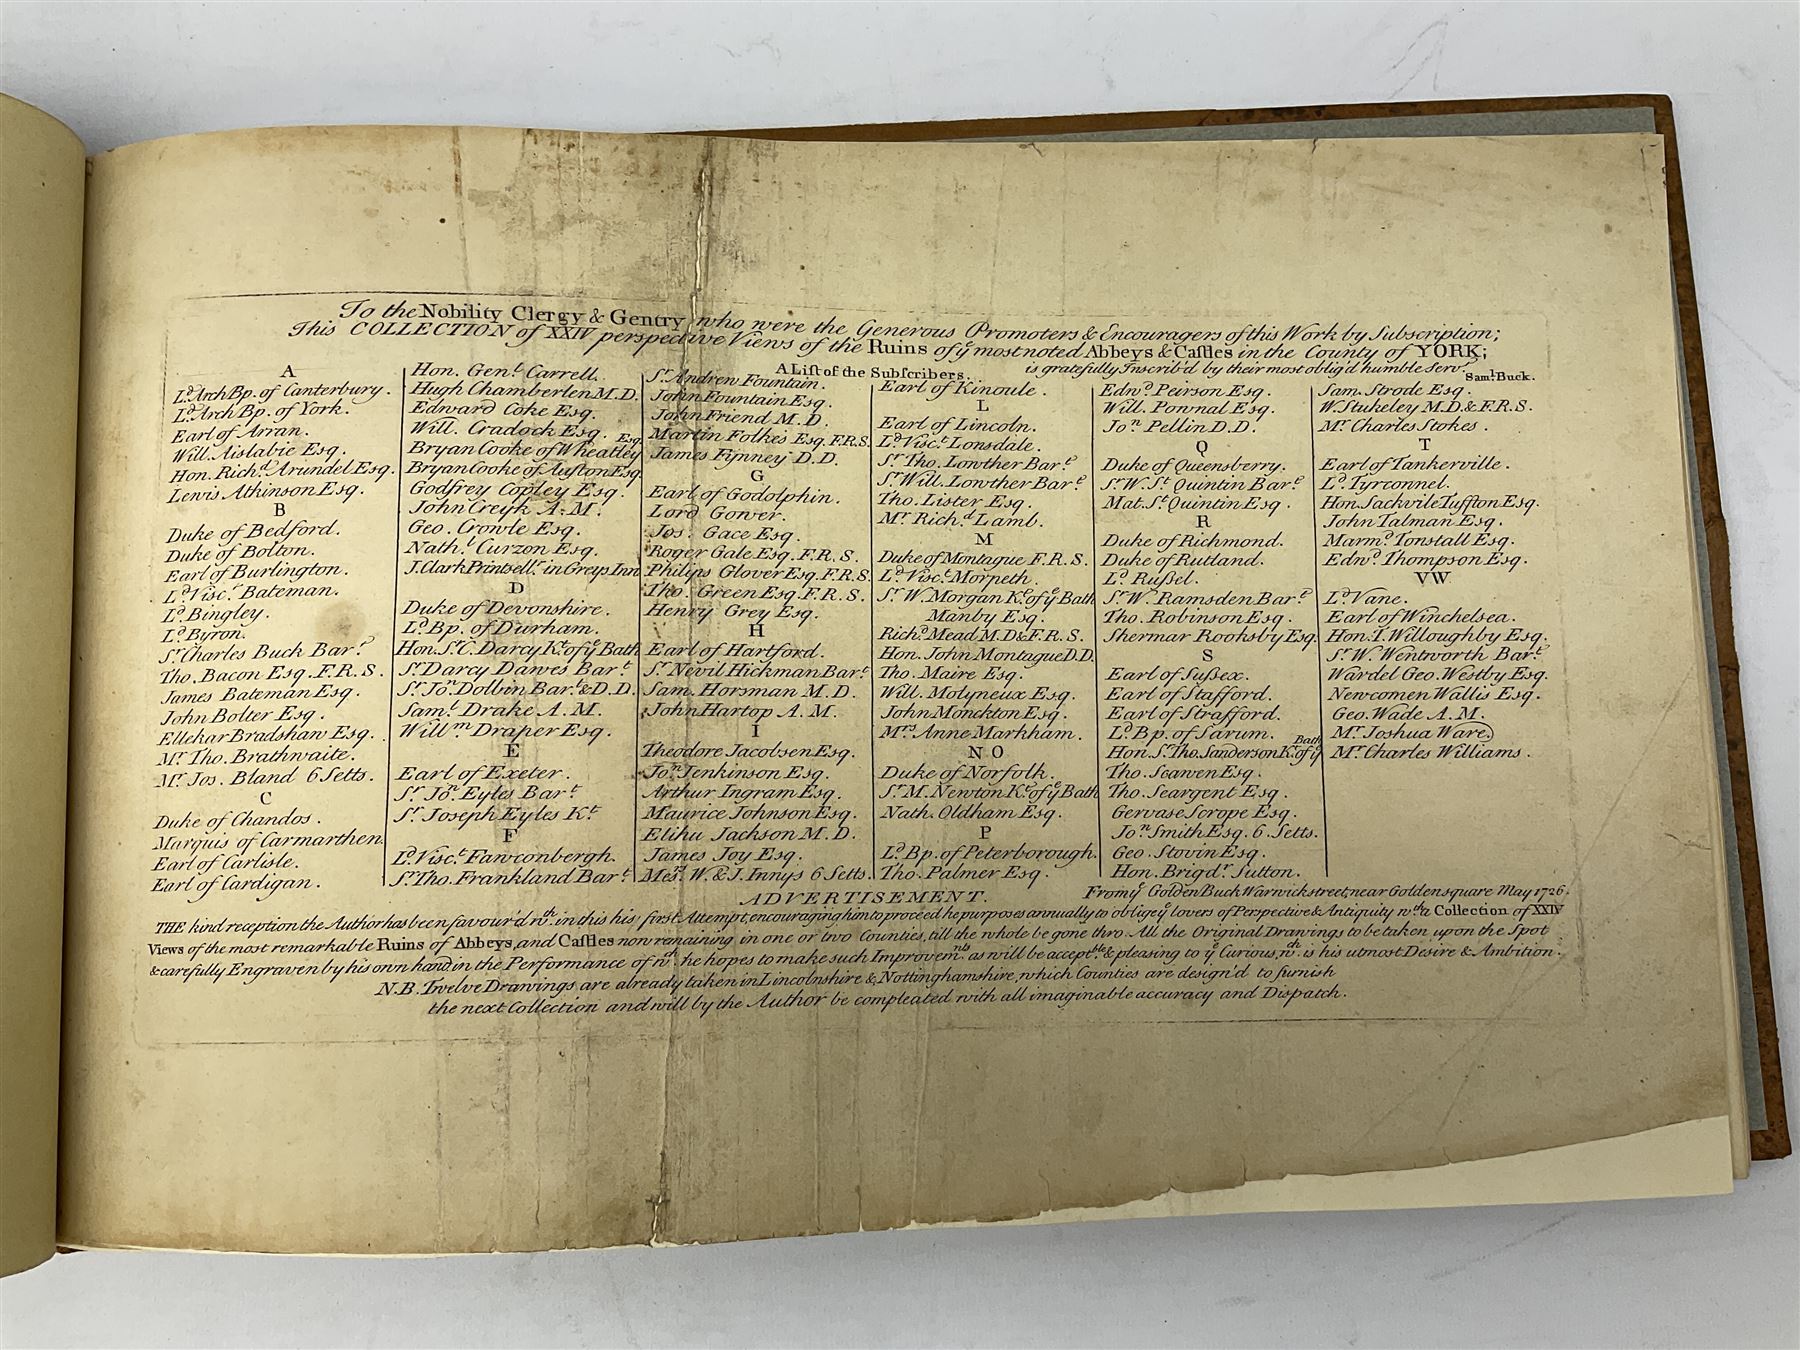 To the Nobility Clergy & Gentry who were the Generous Promoters & Encouragers of this Work by Subscription;
This COLLECTION of XXIV perspective Views of the Ruins of yᵉ most noted Abbeys & Caſtles in the County of YORK;
is gratefully Inscrib'd by their most oblig'd humble Servᵗ.
Samˡ. Buck.
A Liſt of the Subſcribers.
A
Lᵈ. ArchBp. of Canterbury.
Lᵈ. ArchBp. of York.
Earl of Arran.
Will. Aislabie Esq.
Hon. Richᵈ. Arundel Esq.
Lewis Atkinson Esq.
B
Duke of Bedford.
Duke of Bolton.
Earl of Burlington.
Lᵈ. Viscᵗ. Bateman.
Lᵈ. Bingley.
Lᵈ. Byron.
Sʳ. Charles Buck Barᵗ.
Tho. Bacon Esq. F.R.S.
James Bateman Esq.
John Bolter Esq.
Ellekar Bradshaw Esq.
Mʳ. Tho. Brathwaite.
Mʳ. Jos. Bland 6 Setts.
C
Duke of Chandos.
Marquis of Carmarthen.
Earl of Carlisle.
Earl of Cardigan.
Hon. Genˡ. Carrell.
Hugh Chamberlen M.D.
Edward Coke Esq.
Will. Cradock Esq.
Bryan Cooke of Wheatley Esq.
Bryan Cooke of Auſton Esq.
Godfrey Copley Esq.
John Creyk A.M.
Geo. Crowle Esq.
Nathˡ. Curzon Esq.
J. Clark Printsellʳ. in Greys Inn
D
Duke of Devonshire.
Lᵈ. Bp. of Durham.
Hon. Sʳ. C. Darcy Kᵗ. of yᵉ Bath
Sʳ. Darcy Dawes Barᵗ.
Sʳ. Joⁿ. Dolbin Barᵗ. & D.D.
Samˡ. Drake A.M.
Willᵐ. Draper Esq.
E
Earl of Exeter.
Sʳ. Joⁿ. Eyles Barᵗ.
Sʳ. Joseph Eyles Kᵗ.
F
Lᵈ. Viscᵗ. Fawconbergh.
Sʳ. Tho. Frankland Barᵗ.
Sʳ. Andrew Fountain.
John Fountain Esq.
John Friend M.D.
Martin Folkes Esq. F.R.S.
James Fynney D.D.
G
Earl of Godolphin.
Lord Gower.
Jos. Gace Esq.
Roger Gale Esq. F.R.S.
Philips Glover Esq. F.R.S.
Tho. Green Esq. F.R.S.
Henry Grey Esq.
H
Earl of Hartford.
Sʳ. Nevil Hickman Barᵗ.
Sam. Horsman M.D.
John Hartop A.M.
I
Theodore Jacobsen Esq.
Joⁿ. Jenkinson Esq.
Arthur Ingram Esq.
Maurice Johnson Esq.
Elihu Jackson M.D.
James Joy Esq.
Meſ.ʳˢ W. & J. Innys 6 Setts.
Earl of Kinoule.
L
Earl of Lincoln.
Lᵈ. Viscᵗ. Lonsdale.
Sʳ. Tho. Lowther Barᵗ.
Sʳ. Will. Lowther Barᵗ.
Tho. Lister Esq.
Mʳ. Richᵈ. Lamb.
M
Duke of Montague F.R.S.
Lᵈ. Viscᵗ. Morpeth.
Sʳ. W. Morgan Kᵗ. of yᵉ Bath
Manby Esq.
Richᵈ. Mead M.D. & F.R.S.
Hon. John Montague D.D.
Tho. Maire Esq.
Will. Molyneux Esq.
John Monckton Esq.
Mʳˢ. Anne Markham.
N O
Duke of Norfolk.
Sʳ. M. Newton Kᵗ. of yᵉ Bath
Nath. Oldham Esq.
P
Lᵈ. Bp. of Peterborough.
Tho. Palmer Esq.
Edwᵈ. Peirson Esq.
Will. Pownal Esq.
Joⁿ. Pellin D.D.
Q
Duke of Queensberry.
Sʳ. W. Sᵗ. Quintin Barᵗ.
Mat. Sᵗ. Quintin Esq.
R
Duke of Richmond.
Duke of Rutland.
Lᵈ. Ruſsel.
Sʳ. W. Ramsden Barᵗ.
Tho. Robinson Esq.
Shermar Rooksby Esq.
S
Earl of Suſsex.
Earl of Stafford.
Earl of Strafford.
Lᵈ. Bp. of Sarum.
Hon. Sʳ. Tho. Sanderson Kᵗ. of yᵉ Bath
Tho. Scawen Esq.
Tho. Seargent Esq.
Gervase Scrope Esq.
Joⁿ. Smith Esq. 6. Setts.
Geo. Stovin Esq.
Hon. Brigdʳ. Sutton.
Sam. Strode Esq.
W. Stukeley M.D. & F.R.S.
Mʳ. Charles Stokes.
T
Earl of Tankerville.
Lᵈ. Tyrconnel.
Hon. Sackvile Tuffton Esq.
John Talman Esq.
Marmᵉ. Tonstall Esq.
Edwᵈ. Thompson Esq.
VW
Lᵈ. Vane.
Earl of Winchelsea.
Hon. I. Willoughby Esq.
Sʳ. W. Wentworth Barᵗ.
Wardel Geo. Westby Esq.
Newcomen Wallis Esq.
Geo. Wade A.M.
Mʳ. Joshua Ware.
Mʳ. Charles Williams.
ADVERTISEMENT. From yᵉ Golden Buck Warwick street, near Golden square May 1726.
THE kind reception the Author has been favour'd wᵗʰ. in this his first Attempt, encouraging him to proceed he purposes annually to oblige yᵉ lovers of Perspective & Antiquity wᵗʰ a Collection of XXIV
Views of the most remarkable Ruins of Abbeys, and Caſtles now remaining in one or two Counties, till the whole be gone thro. All the Original Drawings to be taken upon the Spot
& carefully Engraven by his own hand in the Performance of wᶜʰ. he hopes to make such Improvemⁿᵗˢ. as will be acceptᵇˡᵉ. & pleasing to yᵉ Curious, wᶜʰ. is his utmost Desire & Ambition.
N.B. Twelve Drawings are already taken in Lincolnshire & Nottinghamshire, which Counties are design'd to furnish
the next Collection and will by the Author be compleated with all imaginable accuracy and Dispatch.